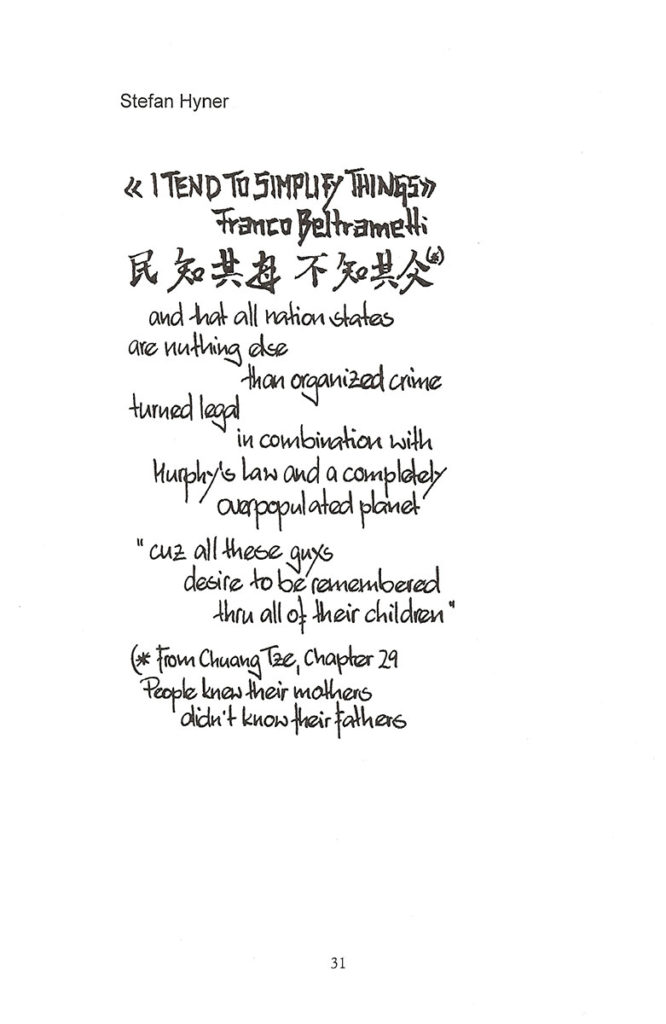 Stefan Hyner
« I TEND TO SIMPLIFY THINGS»
Franco Beltrametti
民知其母 不知其父(*)
and that all nation states
are nuthing else
than organized crime
turned legal
in combination with
Murphy's law and a completely
overpopulated planet
"cuz all these guys
desire to be remembered
thru all of their children"
(* From Chuang Tze, Chapter 29
People knew their mothers
didn't know their fathers
31